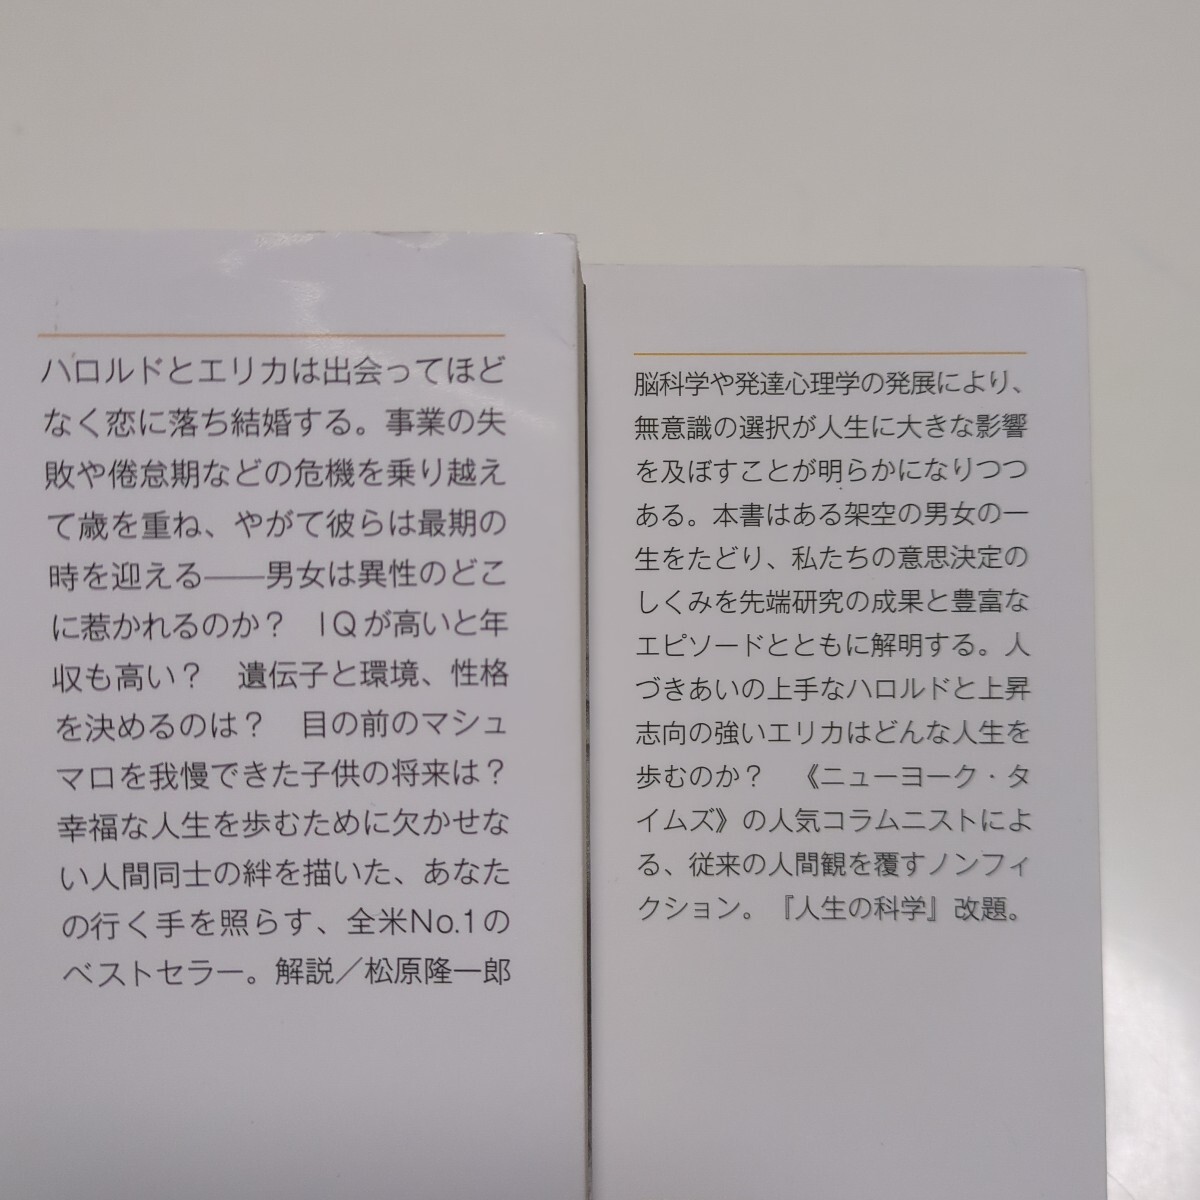 ハロルドとエリカは出会ってほど
なく恋に落ち結婚する。事業の失
敗や倦怠期などの危機を乗り越え
て歳を重ね、やがて彼らは最期の
時を迎える――男女は異性のどこ
に惹かれるのか？　IQが高いと年
収も高い？　遺伝子と環境、性格
を決めるのは？　目の前のマシュ
マロを我慢できた子供の将来は？
幸福な人生を歩むために欠かせな
い人間同士の絆を描いた、あなた
の行く手を照らす、全米No.1の
ベストセラー。解説／松原隆一郎
脳科学や発達心理学の発展により、
無意識の選択が人生に大きな影響
を及ぼすことが明らかになりつつ
ある。本書はある架空の男女の一
生をたどり、私たちの意思決定の
しくみを先端研究の成果と豊富な
エピソードとともに解明する。人
づきあいの上手なハロルドと上昇
志向の強いエリカはどんな人生を
歩むのか？　《ニューヨーク・タ
イムズ》の人気コラムニストによ
る、従来の人間観を覆すノンフィ
クション。『人生の科学』改題。